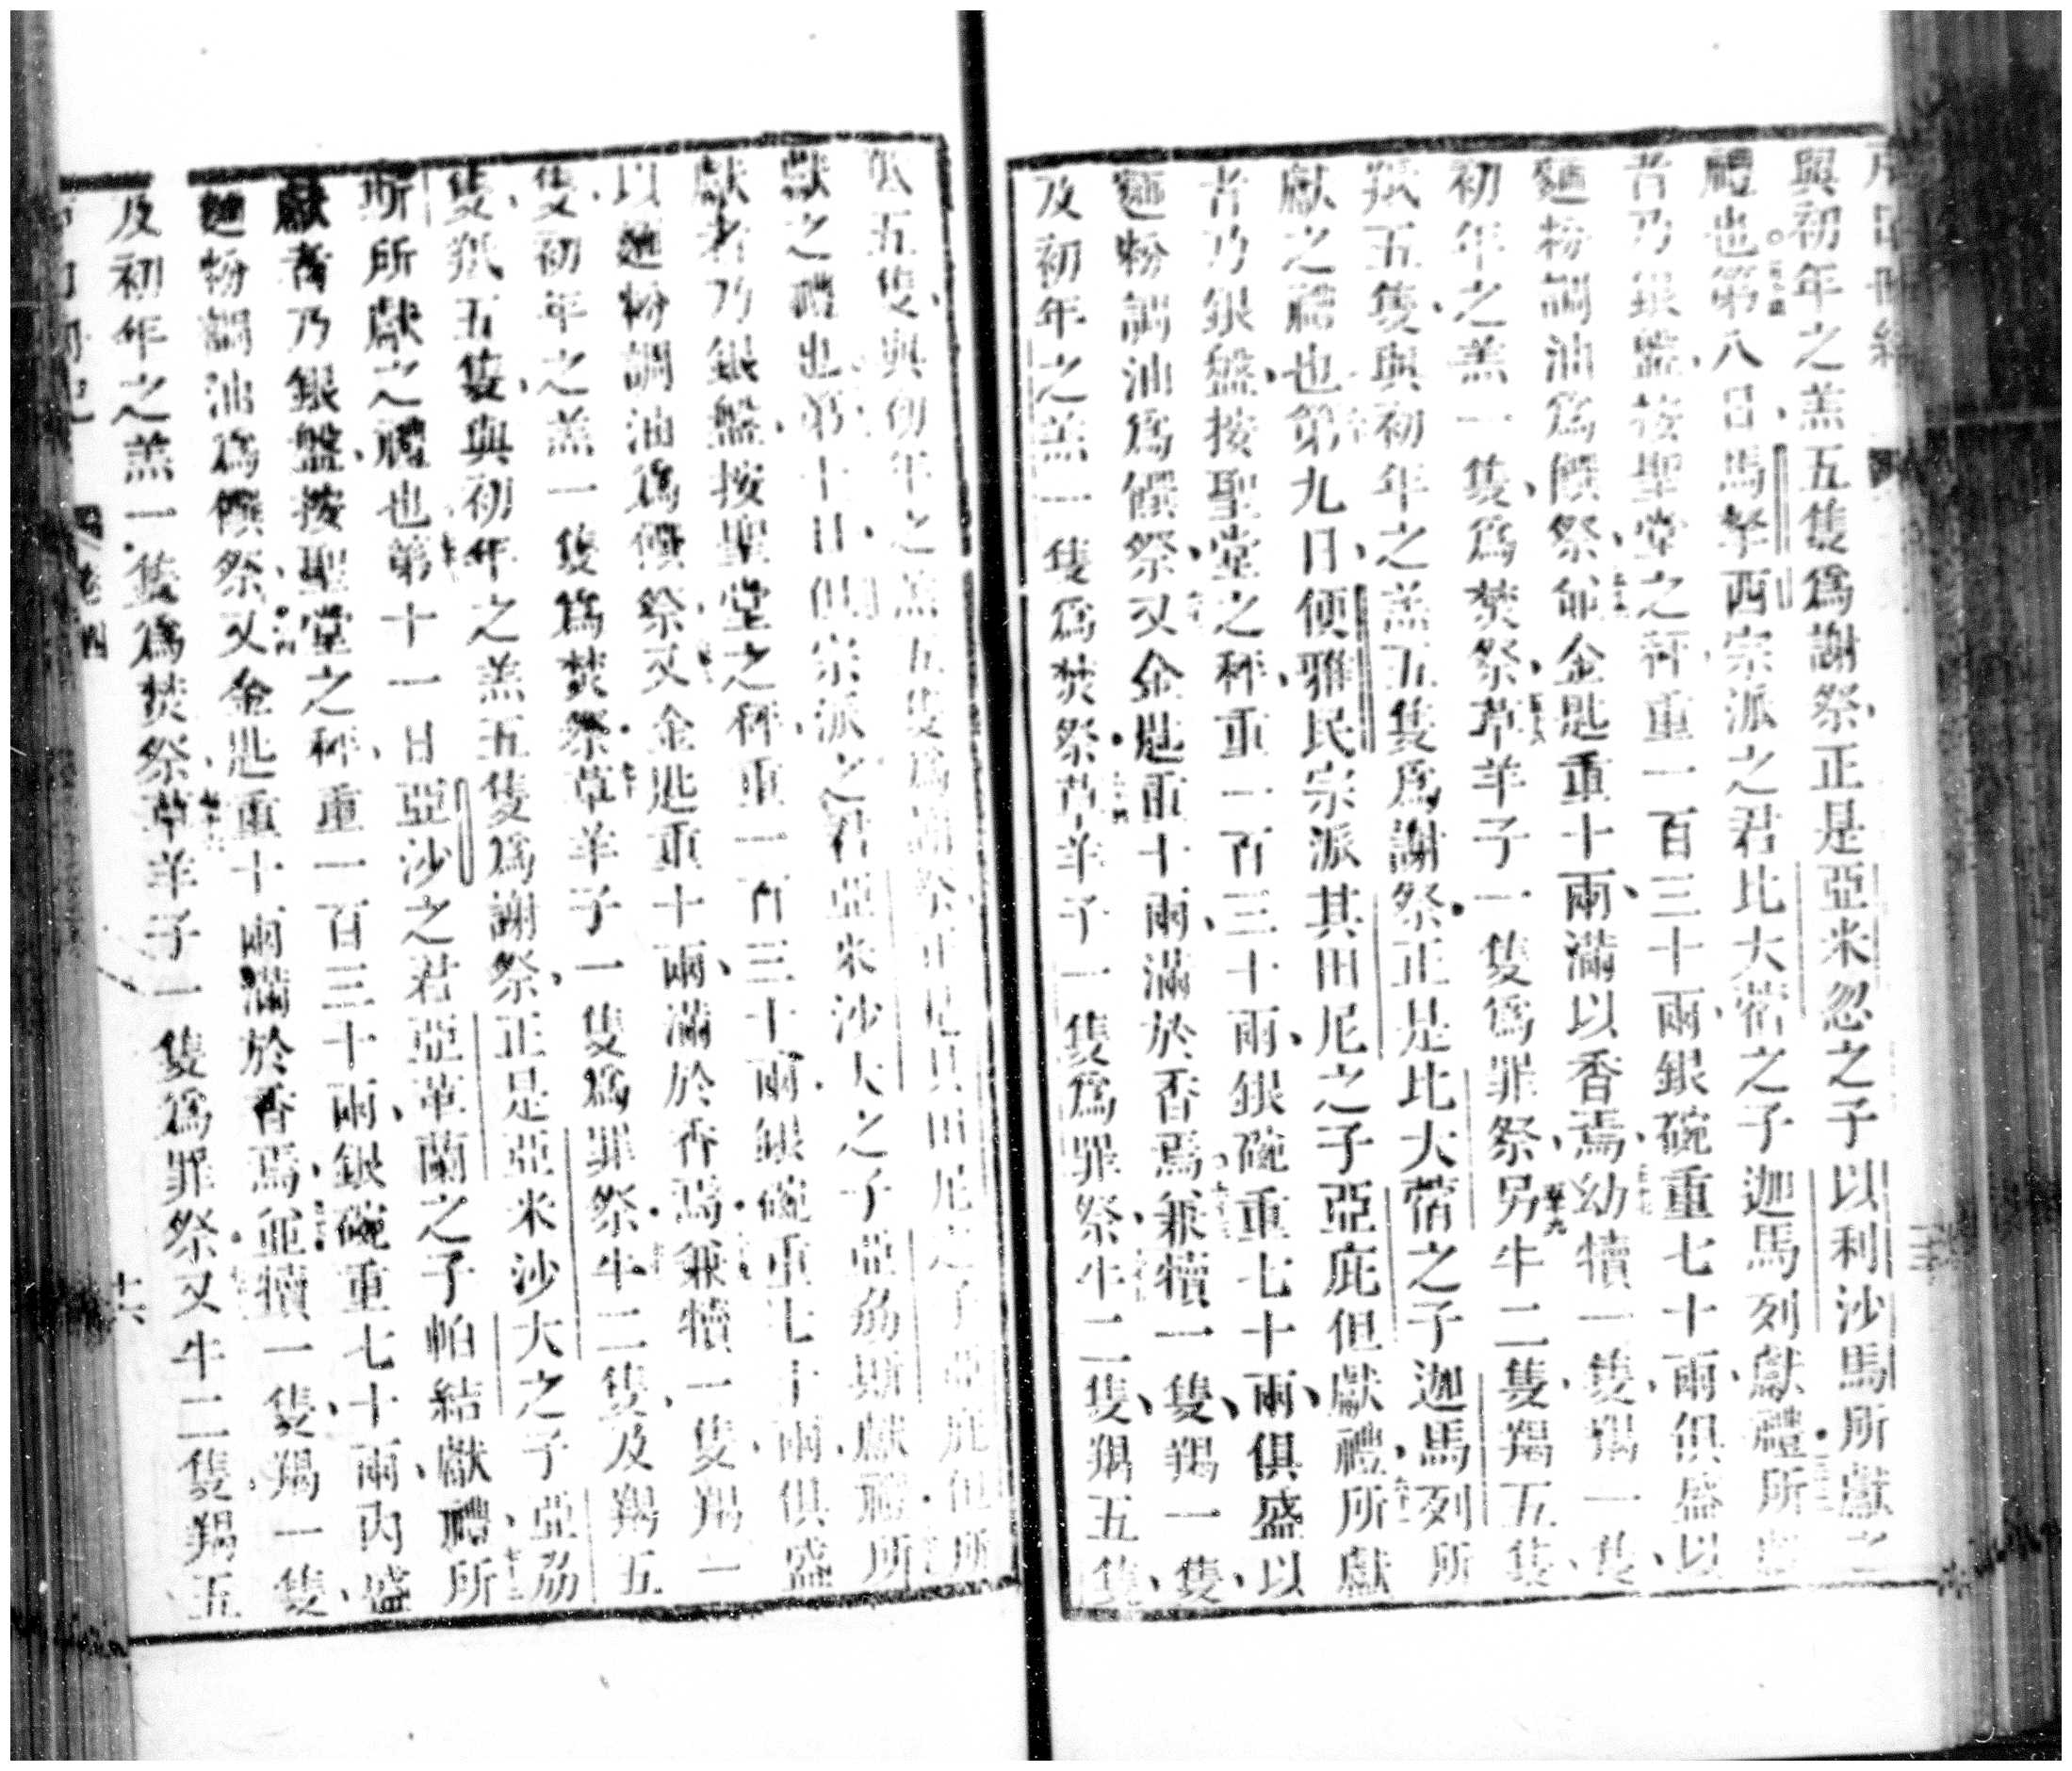 與初年之羔五隻為謝祭正是亞米忽之子以利沙馬所獻之
禮也第八日馬拏西宗派之君比大蓿之子迦馬列獻禮所
者乃銀盤按聖堂之秤重一百三十兩銀碗重七十兩俱盛以
麵粉調油為饌祭節金匙重十兩滿以香焉幼犢一隻羯一隻
初年之羔一隻為焚祭草羊子一隻為罪祭另牛二隻羯五隻
羝五隻與初年之羔五隻為謝祭正是比大蓿之子迦馬列所
獻之禮也第九日便雅民宗派其田尼之子亞庇但獻禮所獻
者乃銀盤按聖堂之秤重一百三十兩銀碗重七十兩俱盛以
麵粉調油為饌祭又金匙重十兩滿於香焉兼犢一隻羯一隻
及初年之羔一隻為焚祭草羊子一隻為罪祭牛二隻羯五隻
羝五隻與初年之羔五隻為謝祭正是其田尼之子亞庇但所
獻之禮也第十日但宗派之君亞米沙大之子亞易斯獻禮所
獻者乃銀盤按聖堂之秤重一百三十兩銀碗重七十兩俱盛
以麵粉調油為饌祭又金匙重十兩滿於香焉兼犢一隻羯一
隻初年之羔一隻為焚祭草羊子一隻為罪祭牛二隻及羯五
隻羝五隻與初年之羔五隻為謝祭正是亞米沙大之子亞易
斯所獻之禮也第十一日亞沙之君亞革蘭之子帕結獻禮所
獻者乃銀盤按聖堂之秤重一百三十兩銀碗重七十兩內盛
麵粉調油為饌祭又金匙重十兩滿於香焉並犢一隻羯一隻
及初年之羔一隻為焚祭草羊子一隻為罪祭又牛二隻羯五
十六